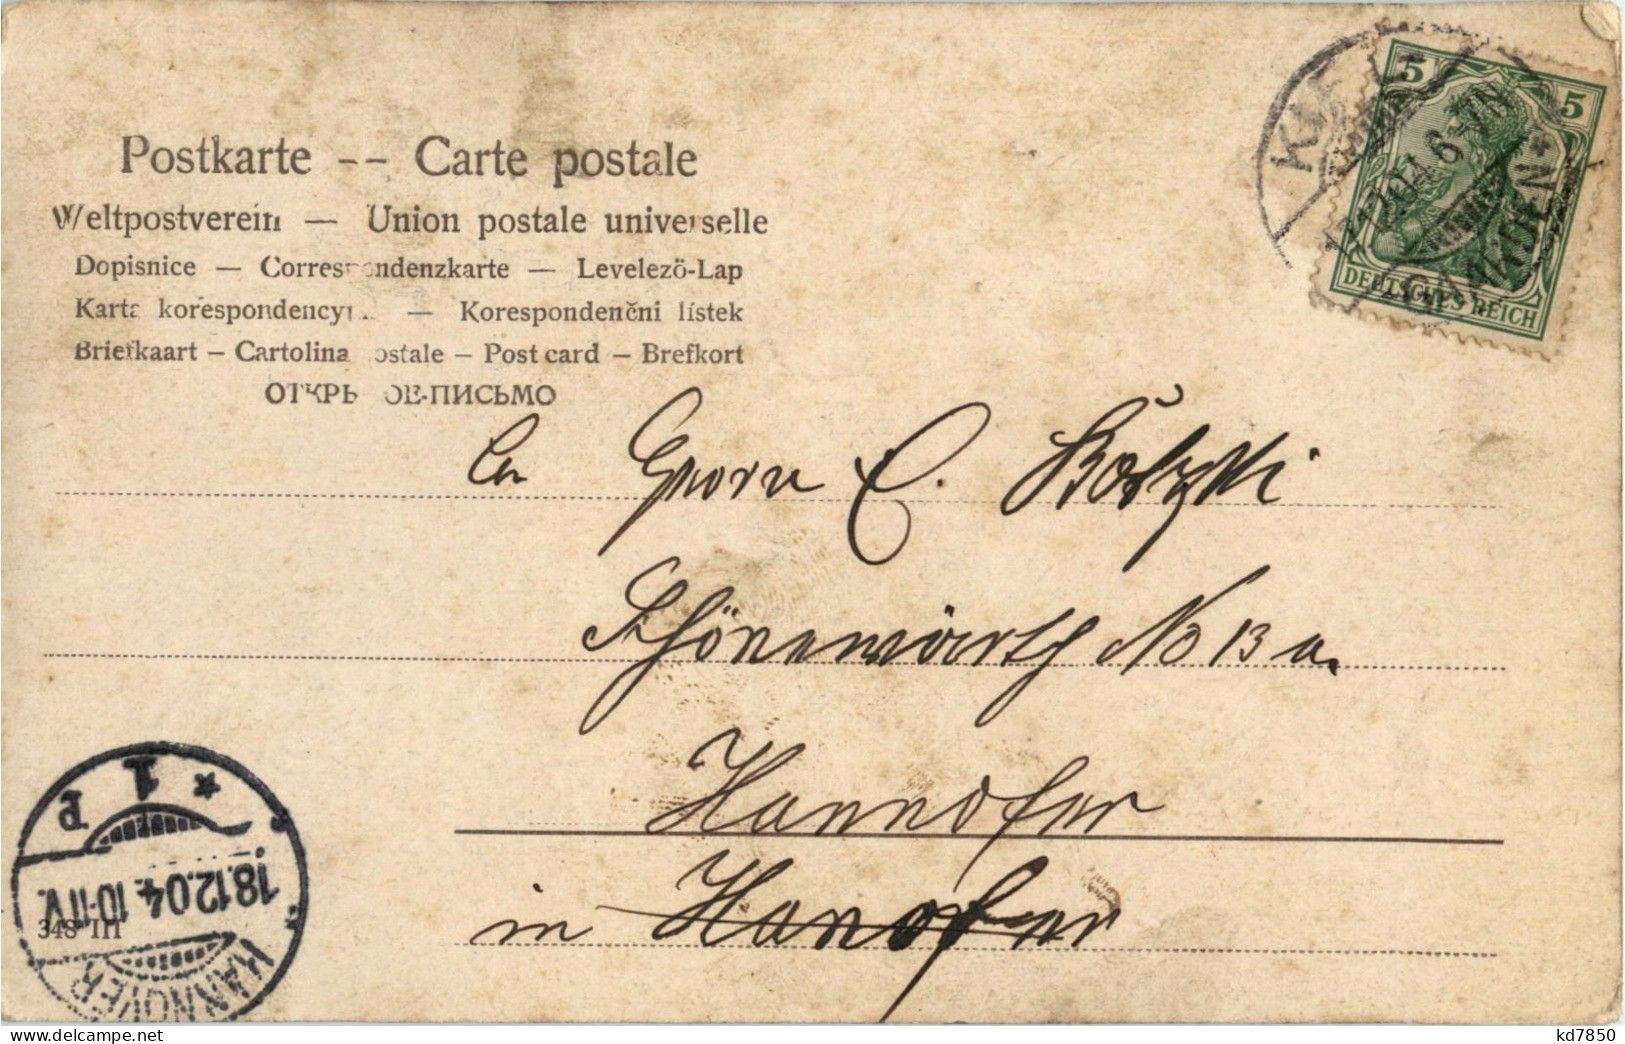 Postkarte -- Carte postale
Weltpostverein — Union postale universelle
Dopisnice — Correspondenzkarte — Levelezö-Lap
Karta korespondencyj — Korespondenčni lístek
Briefkaart — Cartolina postale — Post card — Brefkort
ОТКРЫ ОЕ-ПИСЬМО
5 5
DEUTSCHES REICH
KIEL
Herrn E.
No 13 a.
Hannofer
in Hanofer
1
P
18.12.04. 10-11 V.
HANNOVER
348 III
kd7850